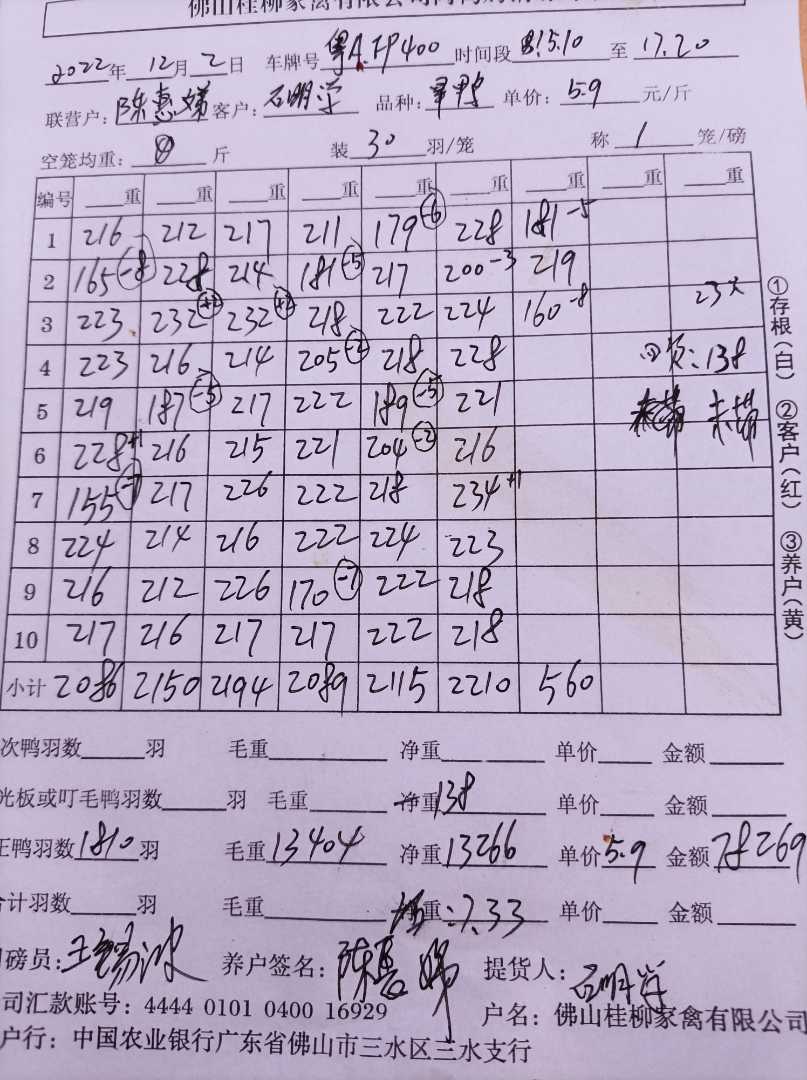 佛山桂柳家禽有限公司
2022年 12月 2日 车牌号 粤A.FP400 时间段 15.10 至 17.20
联营户: 陈惠娣 客户: 石明学 品种: 单价: 5.9 元/斤
空笼均重: 0 斤 装 30 羽/笼 称 1 笼/磅
编号 重 重 重 重 重 重 重 重
1 216 212 217 211 179 -6 228 181 -5
2 165 -8 228 214 181 -5 217 200 -3 219
3 223 232 +2 232 +2 218 222 224 160 -8 23天
4 223 216 214 205 -2 218 228 回货:138
5 219 187 -5 217 222 189 -5 221
6 228 +1 216 215 221 204 -2 216
7 155 -7 217 226 222 218 234 +1
8 224 214 216 222 224 223
9 216 212 226 170 -7 222 218
10 217 216 217 217 222 218
小计 2086 2150 2194 2089 2115 2210 560
①存根(白) ②客户(红) ③养户(黄)
次鸭羽数 羽 毛重 净重 单价 金额
光板或叮毛鸭羽数 羽 毛重 净重 138 单价 金额
正鸭羽数 1810 羽 毛重 13404 净重 13266 单价 5.9 金额 78269
合计羽数 羽 毛重 重: 7.33 单价 金额
司磅员: 养户签名: 陈惠娣 提货人: 石明学
司汇款账号: 4444 0101 0400 16929 户名: 佛山桂柳家禽有限公司
户行: 中国农业银行广东省佛山市三水区三水支行